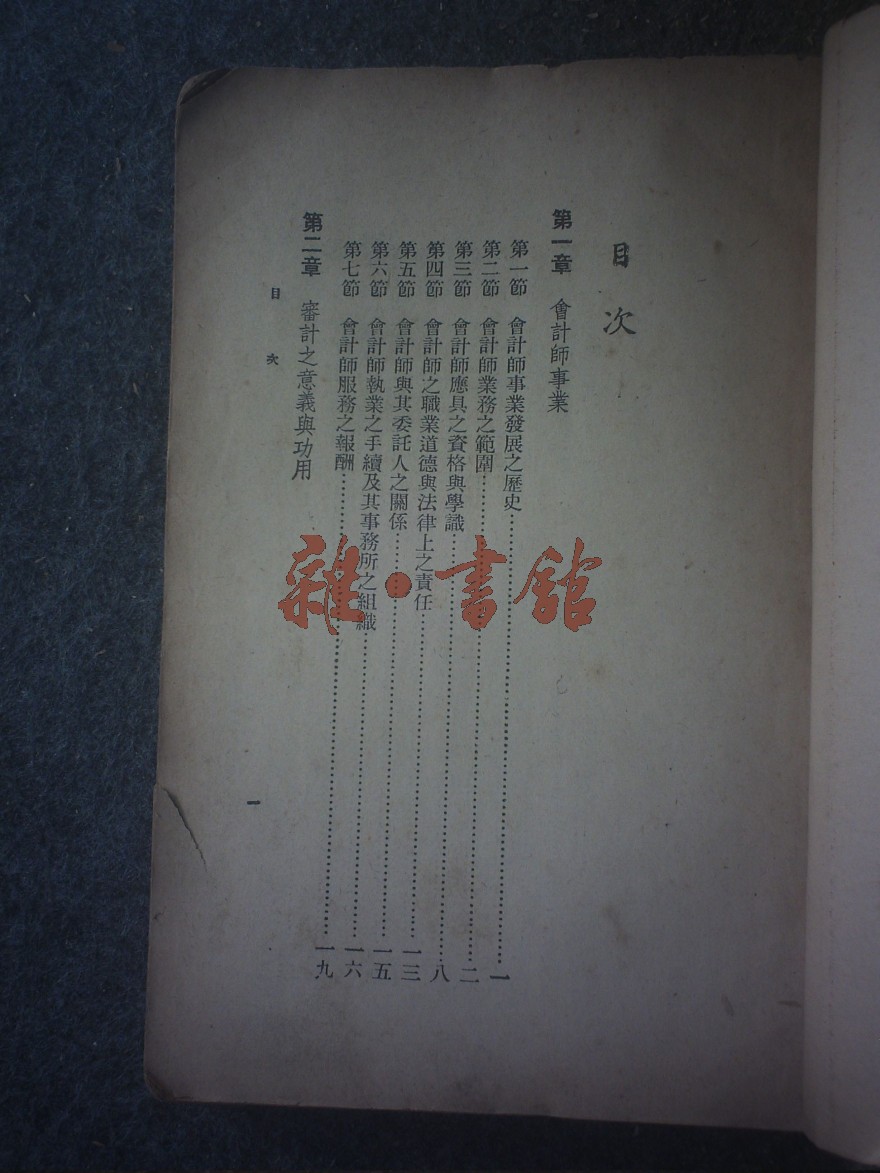 目次
第一章 會計師事業
第一節 會計師事業發展之歷史……一
第二節 會計師業務之範圍……二
第三節 會計師應具之資格與學識……八
第四節 會計師之職業道德與法律上之責任……一三
第五節 會計師與其委託人之關係……一五
第六節 會計師執業之手續及其事務所之組織……一六
第七節 會計師服務之報酬……一九
第二章 審計之意義與功用
目次
一
雜·書館